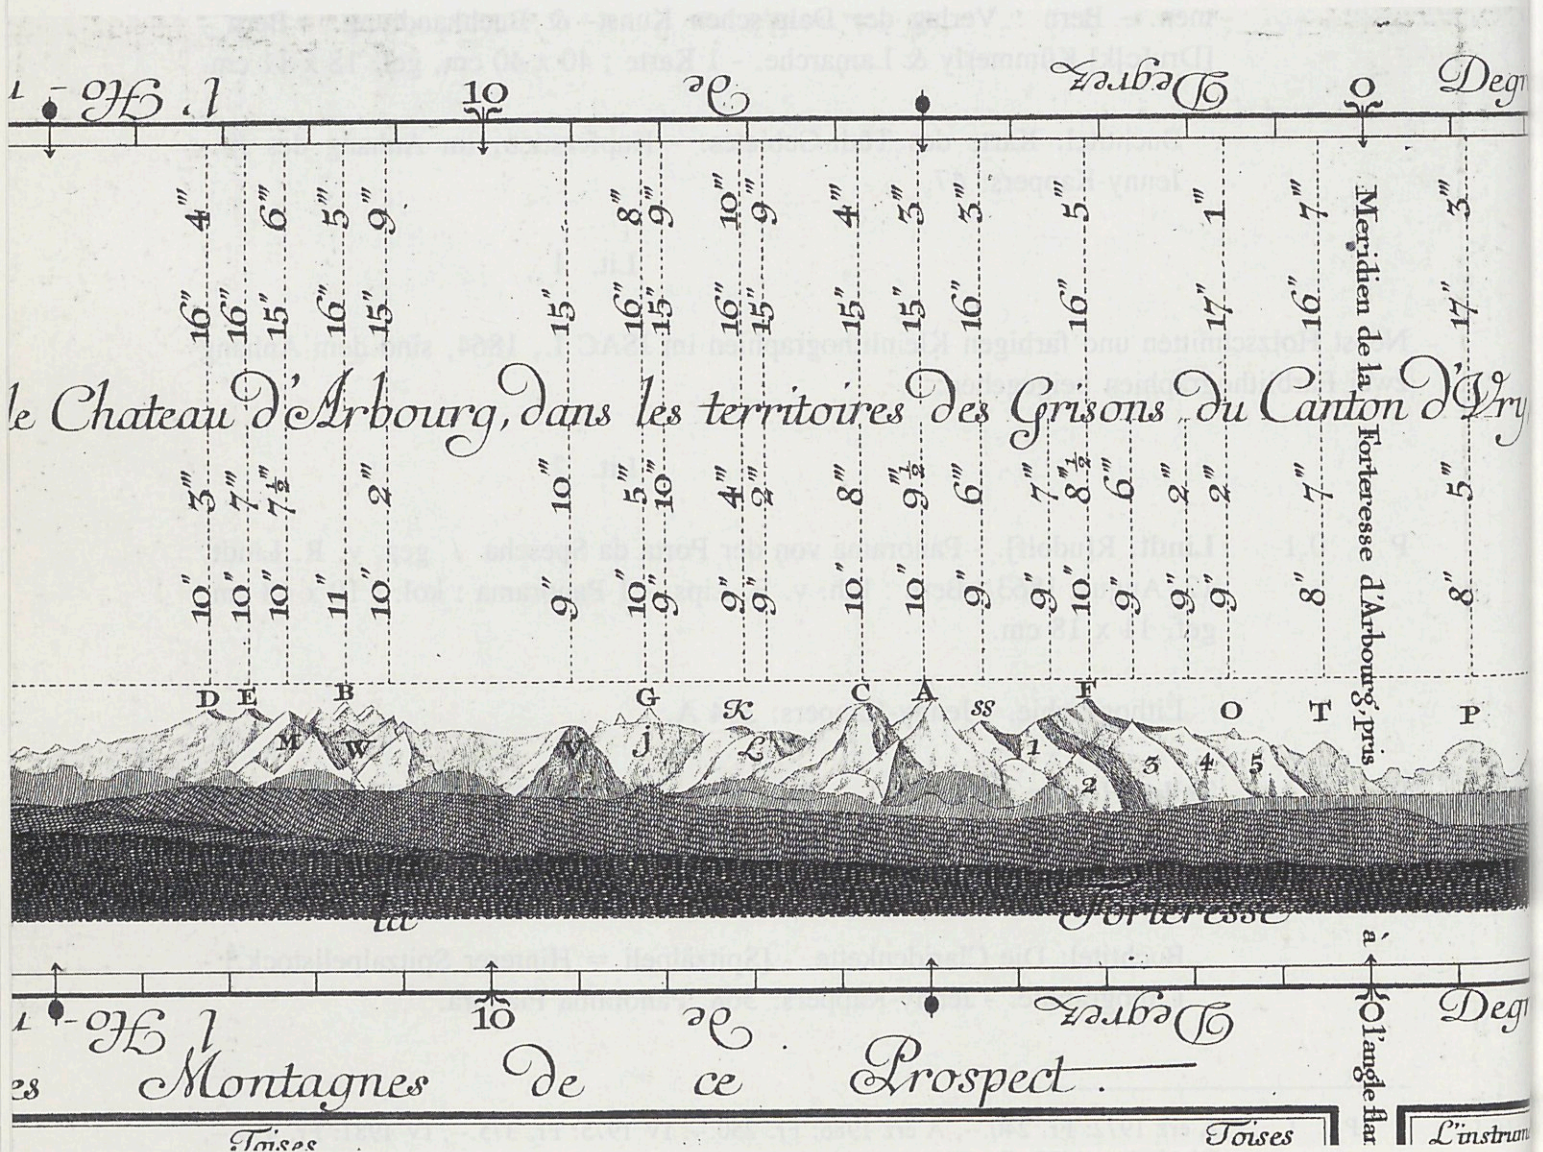 10
de
Degrez
0
Degr
4''' 6''' 5''' 9''' 8''' 9''' 10''' 9''' 4''' 3''' 3''' 5''' 1''' 7''' 3'''
16'' 16'' 15'' 16'' 15'' 15'' 16'' 15'' 16'' 15'' 15'' 15'' 16'' 16'' 17'' 16'' 17''
le Chateau d'Arbourg, dans les territoires des Grisons, du Canton d'Vry
3''' 7''' 7½''' 2''' 10''' 5''' 10''' 4''' 2''' 8''' 9½''' 6''' 7''' 8½''' 6''' 2''' 2''' 7''' 5'''
10'' 10'' 10'' 11'' 10'' 9'' 10'' 9'' 9'' 9'' 10'' 10'' 9'' 9'' 10'' 9'' 9'' 9'' 8'' 8''
Meridien de la Forteresse d'Arbourg, pris
D E B G K C A ss F O T P
M W V j L 1 2 3 4 5
la Forteresse
à
10
de
Degrez
0
Degr
l'angle flan
es Montagnes de ce Prospect.
Toises
Toises
L'instrum